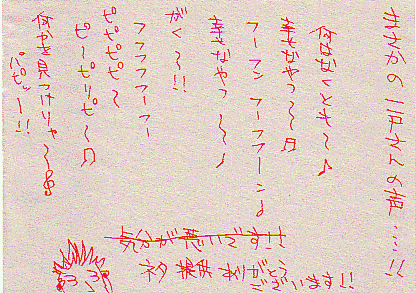 まさかの一戸さんの声……!!
何はなくとも〜♪
幸せなやつ〜〜♫
フーフン フーフフーン♩
幸せなやつ 〜〜♪
がく〜!!
フフフフフーフー
ピピピピ〜
ピーピリピ〜♫
何かを見つけりゃ〜〜𝄞
パピッー!!
気分が悪いです!!
ネタ提供ありがとう
ございます!!